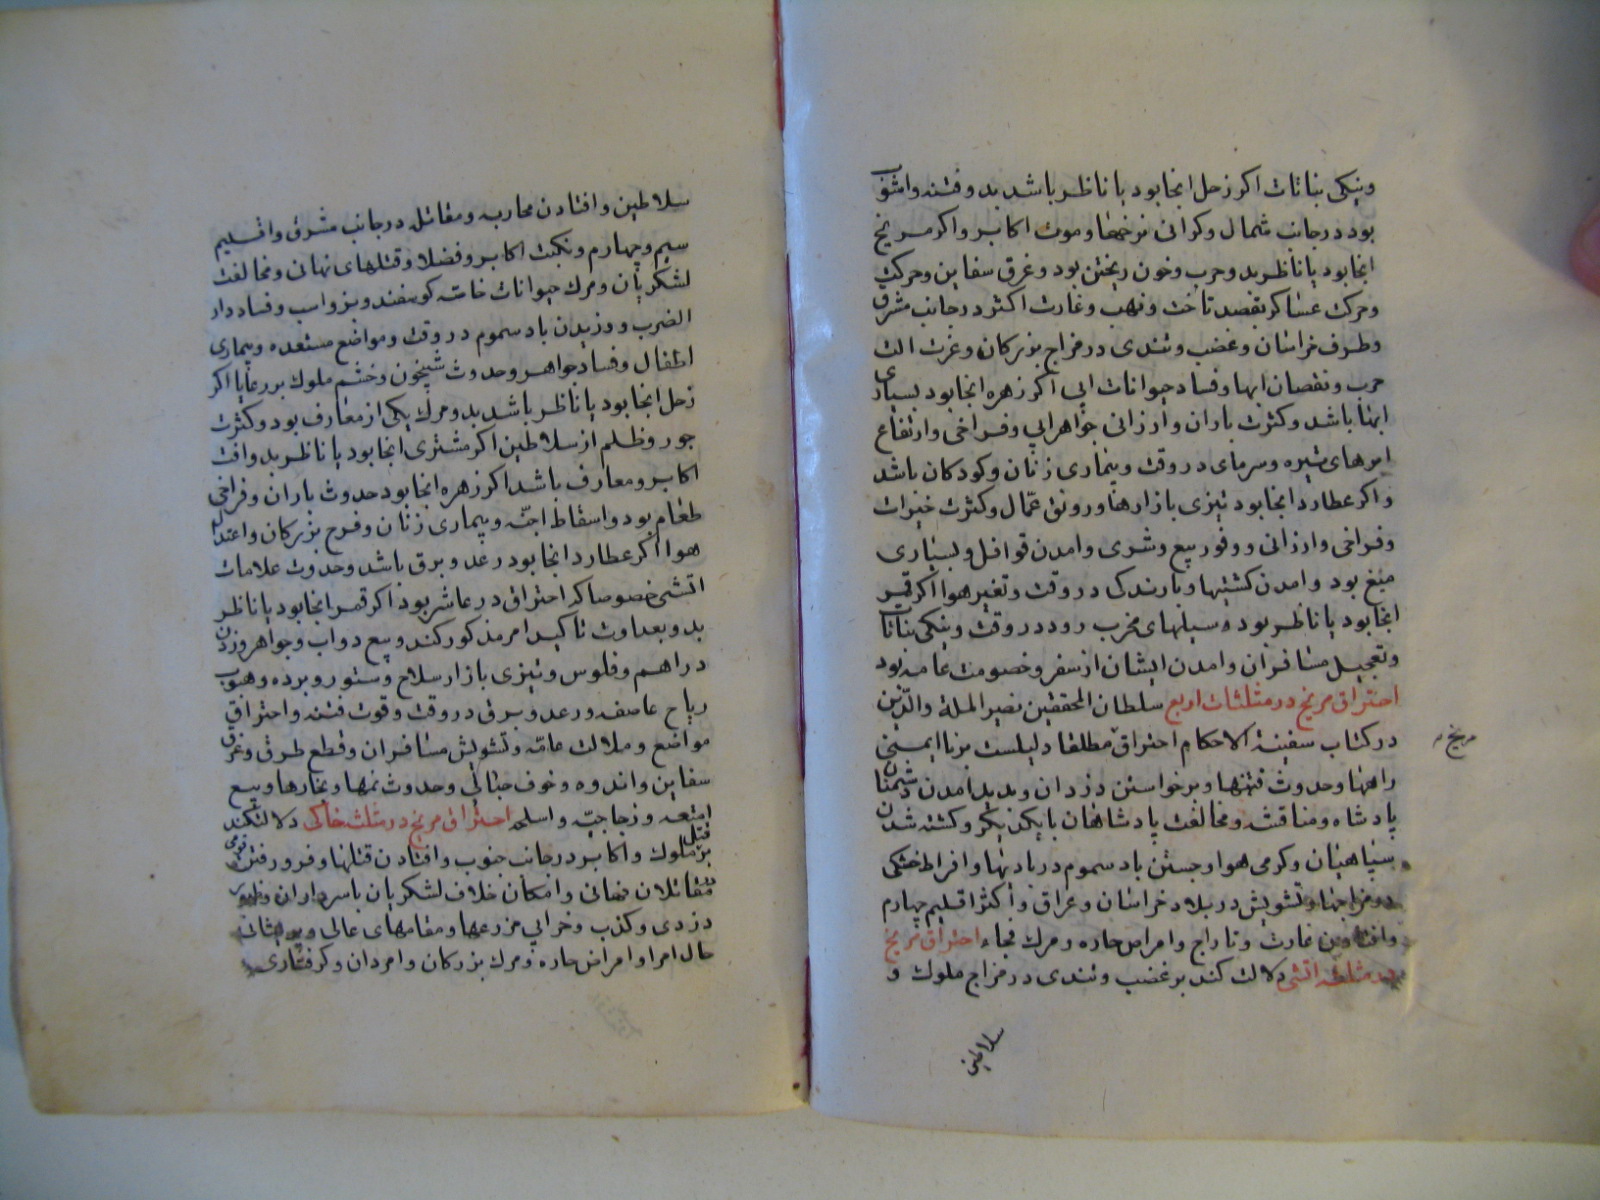 ونیکی نباتات اکر زحل انجا بود یا ناظر باشد بد و فتنه واشوب
بود در جانب شمال وکرانی نرخها وموت اکابر واکر مریخ
انجا بود یا ناظر بد وحرب وخون ریختن بود وغرق سفاین وحرکت
وحرکت عساکر بقصد تاخت ونهب وغارت اکثر در جانب مشرق
وطرف خراسان وغضب وتندی در مزاج بزرکان وعزت الت
حرب ونقصان ابها وفساد حیوانات ابی اکر زهره انجا بود بسیاری
ابها باشد وکثرت باران وارزانی جواهر ابی وفراخی وارتفاع
ابرهای تیره وسرمای در وقت وبیماری زنان وکودکان باشد
واکر عطارد انجا بود تیزی بازارها ورونق عمال وکثرت خیرات
وفراخی وارزانی ووفور بیع وشری وامدن قوافل وبسیاری
میغ بود وامدن کشتیها وبارندکی در وقت وتغیر هوا اکر قمر
انجا بود یا ناظر بود وسیلهای مخرب رود در وقت ونیکی نباتات
وتعجیل مسافران وامدن ایشان از سفر وخصومت عامه بود
احتراق مریخ در مثلثات اربع سلطان المحققین نصیر الملة والدین
در کتاب سفینة الاحکام احتراق مطلقا دلیلست بر نا ایمنی
مریخ
راهها وحدوث فتنها وبرخواستن دزدان وپدید امدن دشمنان
پادشاه ومناقشه ومخالفت پادشاهان با یکدیکر وکشته شدن
سپاهیان وکرمی هوا وجستن باد سموم در بادیها وافراط خشکی
در مزاجها وتشویش در بلاد خراسان وعراق واکثر اقلیم چهارم
وافتادن غارت وتاراج وامراض حاره ومرک فجاء احتراق مریخ
در مثلثه اتشی دلالت کند بر غضب وتندی در مزاج ملوک و
سلاطین
سلاطین وافتادن محاربه ومقاتله در جانب مشرق واقلیم
سیم وچهارم ونکبت اکابر وفضلا وقتلهای نهانی ومخالفت
لشکریان ومرک حیوانات خاصه کوسفند وبز واسب وفساد دار
الضرب ووزیدن باد سموم در وقت ومواضع مستعده وبیماری
اطفال وفساد جواهر وحدوث شبیخون وخشم ملوک بر رعایا اکر
زحل انجا بود یا ناظر باشد بد ومرک یکی از معارف بود وکثرت
جور وظلم از سلاطین اکر مشتری انجا بود یا ناظر بد وافت
اکابر ومعارف باشد اکر زهره انجا بود حدوث باران وفراخی
طعام بود واسقاط اجنه وبیماری زنان وفرح بزرکان واعتدال
هوا اکر عطارد انجا بود رعد وبرق باشد وحدوث علامات
اتشی خصوصا که احتراق در عاشر بود اکر قمر انجا بود یا ناظر
بد وبعداوت تاکید امر مذکور کند وبیع دواب وجواهر وزدن
دراهم وفلوس وتیزی بازار سلاح وستور وبرده وهبوب
ریاح عاصفه ورعد وبرق در وقت وقوت فتنه واحتراق
مواضع وملالت عامه وتشویش مسافران وقطع طرق وغرق
سفاین واندوه وخوف حبالی وحدوث نمها وبخارها وبیع
امتعه وزجاجیه واسلحه احتراق مریخ در مثلثه خاکی دلالت کند
بر قتل ملوک واکابر در جانب جنوب وافتادن قتلها وفرو رفتن
مقاتلان نهانی وامکان خلاف لشکریان با سرداران وظهور
دزدی وکذب وخرابی مزرعها ومقامهای عالی وپریشانی
حال امرا وامراض حاره ومرک بزرکان وامردان وکرفتاری